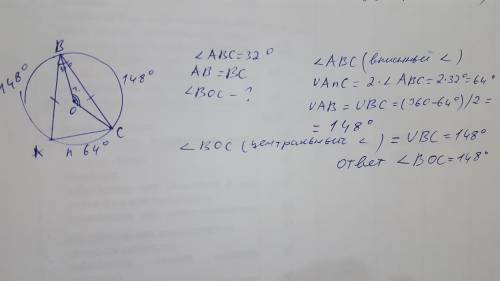 B
148°
148°
?
O
A
C
n 64°
∠ABC=32°
AB=BC
∠BOC-?
∠ABC (вписанный ∠)
∪AnC = 2·∠ABC=2·32°=64°
∪AB = ∪BC=(360-64°)/2 =
= 148°
∠BOC (центральный ∠) = ∪BC=148°
Ответ ∠BOC=148°